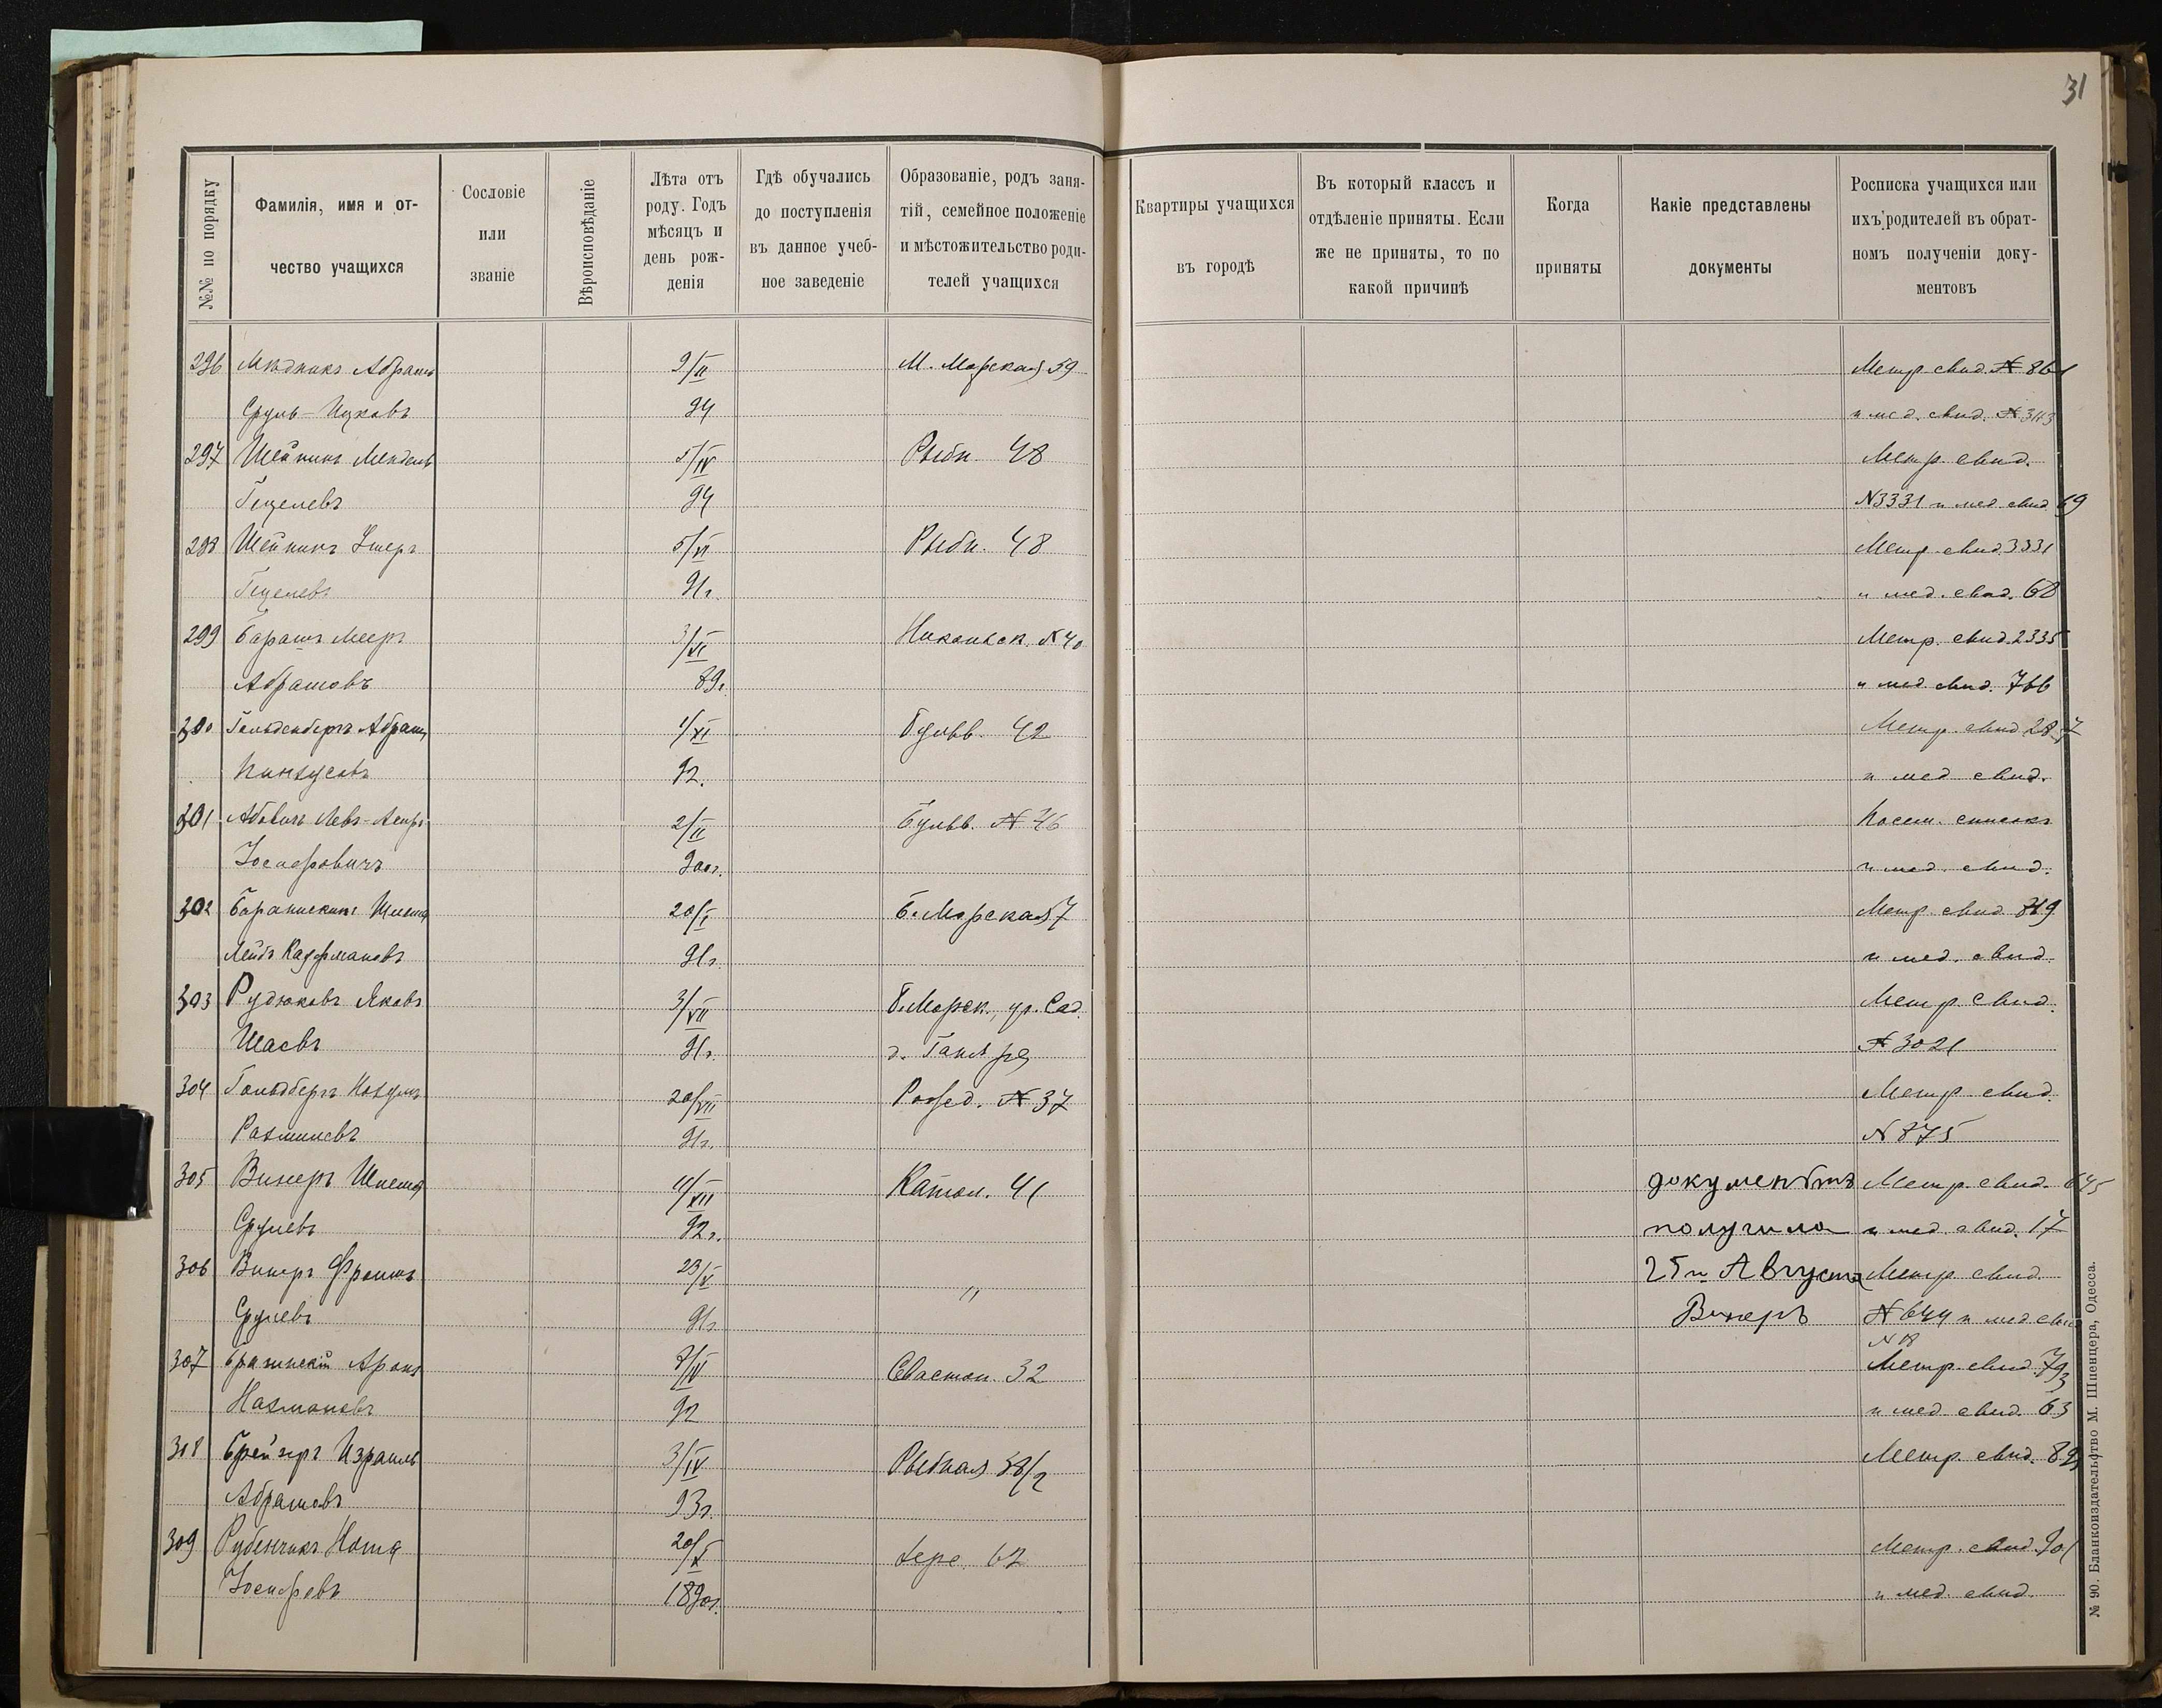 31
№№ по порядку
Фамилія, имя и от-
чество учащихся
Сословіе
или
званіе
Вѣроисповѣданіе
Лѣта отъ
роду. Годъ
мѣсяцъ и
день рож-
денія
Гдѣ обучались
до поступленія
въ данное учеб-
ное заведеніе
Образованіе, родъ заня-
тій, семейное положеніе
и мѣстожительство роди-
телей учащихся
Квартиры учащихся
въ городѣ
Въ который классъ и
отдѣленіе приняты. Если
же не приняты, то по
какой причинѣ
Когда
приняты
Какіе представлены
документы
Росписка учащихся или
ихъ родителей въ обрат-
номъ полученіи доку-
ментовъ
296 Мѣдникъ Абрамъ 9/II М. Морская 59 Метр. свид. № 861
Сруль-Ицковъ 94 и мед. свид. № 343
297 Шейнинъ Мендель 5/IV Рыбн. 48 Метр. свид.
Гецелевъ 94 N3331 и мед. свид. 69
298 Шейнинъ 5/VI Рыбн. 48 Метр. свид. 3331
Гецелевъ 91г. и мед. свид. 68
299 Барашъ Мееръ 3/XI Никольск. N 40 Метр. свид. 2335
Абрамовъ 89г. и мед. свид. 766
300 Гольденбергъ Абрамъ 1/XI Бульв. 42 Метр. свид.
Пинхусовъ 92. и мед свид.
301 2/II Бульв. № 46 Посем. списокъ
Іосифовичъ 900г. и мед. свид.
302 20/I Б. Морская 57 Метр. свид. 819
Лейбъ 91г. и мед. свид.
303 Яковъ 3/VII Б. Морск., уг. Сад. Метр. свид.
Шаевъ 91г. д. № 3021
304 Гольдбергъ 20/VIII № 37 Метр. свид.
Рахмилевъ 91г. N 875
305 Винеръ Шлема 4/XII Катол. 41 документы Метр. свид. 645
Срулевъ 92г. получила и мед. свид. 17
306 Винеръ Фроимъ 23/V " 25го Августа Метр. свид.
Срулевъ 91г. Винеръ № 644 и мед свид
N 18
307 Аронъ 7/IV Севастоп. 32 Метр. свид. 793
Нахмановъ 92 и мед свид. 63
308 Израиль 3/IV Рыбная 38/2 Метр. свид.
Абрамовъ 93г.
309 Рубенчикъ 20/X Херс. 62 Метр. свид. 901
Іосифовъ 1890г. и мед. свид.
№ 90. Бланкоиздательство М. Шпенцера, Одесса.